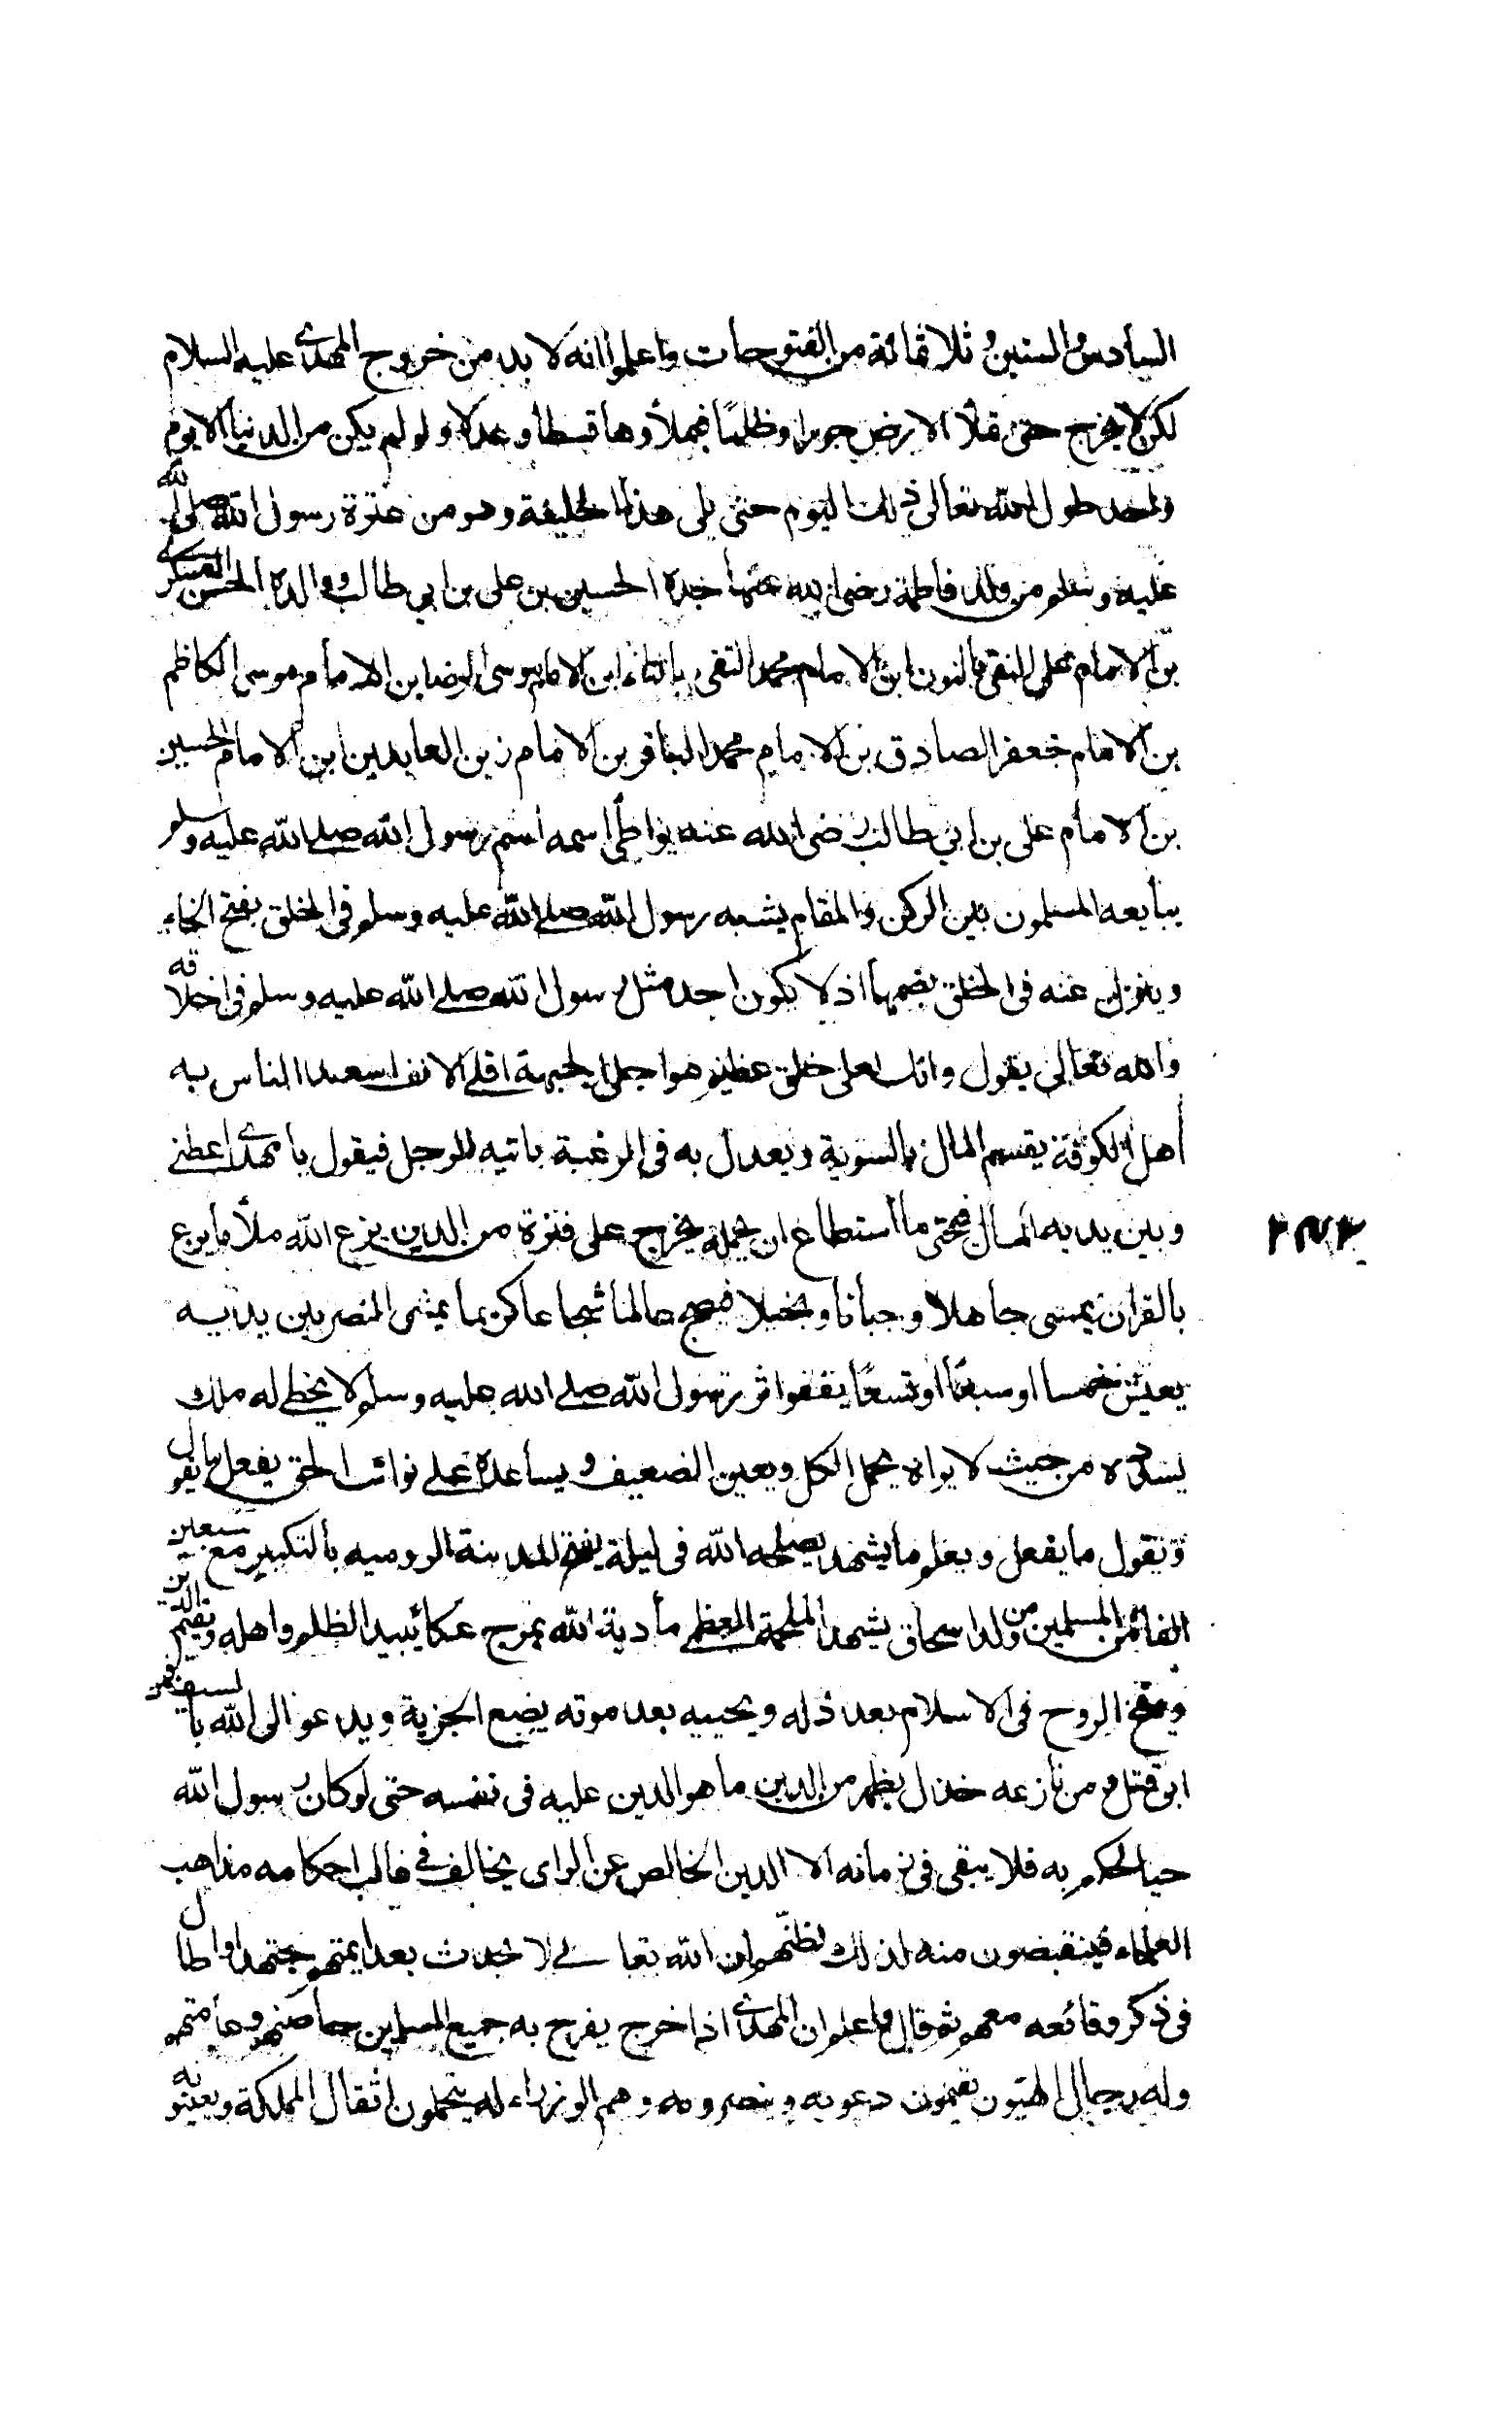 السادس والستين وثلاثمائة من الفتوحات واعلموا انه لا بد من خروج المهدى عليه السلام
لكن لا يخرج حتى تملأ الارض جورا وظلما فيملأوها قسطا وعدلا ولو لم يكن من الدنيا الا يوم
واحد طول الله تعالى ذلك اليوم حتى يلى هذا الخليفة وهو من عترة رسول الله صلى الله
عليه وسلم من ولد فاطمة رضى الله عنها جده الحسين بن على بن ابي طالب ووالده الحسن العسكرى
بن الامام على النقى بالنون ابن الامام محمد التقى بالتاء ابن الامام موسى الرضا بن الامام موسى الكاظم
بن الامام جعفر الصادق بن الامام محمد الباقر بن الامام زين العابدين ابن الامام الحسين
بن الامام على بن ابي طالب رضى الله عنه يواطى اسمه اسم رسول الله صلى الله عليه وسلم
يبايعه المسلمون بين الركن والمقام يشبه رسول الله صلى الله عليه وسلم فى الخلق بفتح الخاء
وينزل عنه فى الخلق بضمها اذ لا يكون احد مثل رسول الله صلى الله عليه وسلم فى اخلاقه
والله تعالى يقول وانك لعلى خلق عظيم هو اجلى الجبهة اقنى الانف اسعد الناس به
أهل الكوفة يقسم المال بالسوية ويعدل به فى الرغبة ياتيه الرجل فيقول يا مهدى اعطنى
وبين يديه المال فيحثى ما استطاع ان يحمله يخرج على فترة من الدين يزع الله ملأ ما يزع
٢٨٢
بالقران يمسى جاهلا وجبانا وبخيلا فيصبح عالما شجاعا كريما يمشى النصر بين يديه
يعيش خمسا او سبعا او تسعا يقفوا اثر رسول الله صلى الله عليه وسلم لا يخطى له ملك
يسدده من حيث لا يراه يحمل الكل ويعين الضعيف ويساعده على نوائب الحق يفعل ما يقول
ويقول ما يفعل ويعلم ما يشهد يصلحه الله فى ليلة يفتح المدينة الرومية بالتكبير مع سبعين
الفا من المسلمين من ولد اسحاق يشهد الملحمة العظمى مأدبة الله بمرج عكا يبيد الظلم واهله ويقيم الدين
وينفخ الروح فى الاسلام بعد ذله ويحييه بعد موته يضع الجزية ويدعو الى الله بالسيف فمن
ابى قتل ومن نازعه خذل يظهر من الدين ما هو الدين عليه فى نفسه حتى لو كان رسول الله
حيا لحكم به فلا يبقى فى زمانه الا الدين الخالص عن الراى يخالف فى غالب احكامه مذاهب
العلماء فينقبضون منه لذلك لظنهم ان الله تعالى لا يحدث بعد ايمتهم مجتهدا واطال
فى ذكر وقائعه معهم ثم قال واعلم ان المهدى اذا خرج يفرح به جميع المسلمين خاصتهم وعامتهم
وله رجال الهيون يقيمون دعوته وينصرونه وهم الوزراء له يتحملون اثقال المملكة ويعينونه